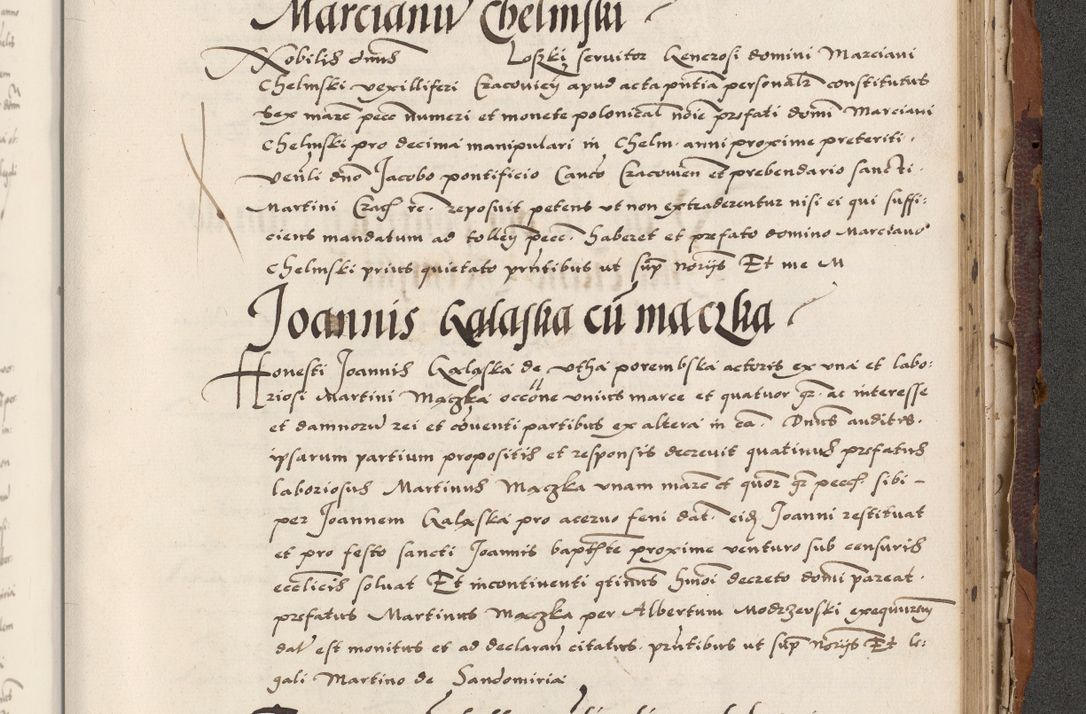 Marcianu Chelmski
Nobilis dnus Loszki servitor Generosi domini Marciani
Chelmski vexilliferi Cracovien apud acta pntia personalr constitutus
sex marc pecc numeri et monete polonical noie prefati domi Marciani
Chelmski pro decima manipulari in Chelm anni proxime preteriti
venli dno Jacobo pontificio Canco Cracovien et prebendario sancti
Martini Crac re. reposuit petens ut non extraderentur nisi ei qui suffi:
ciens mandatum ad tollen pecc haberet et prefato domino Marciano
Chelmski prius quietato pntibus ut sup noriis Et me M
Joannis Kalaska cu maczka
Honesti Joannis Kalaska de utha porembska actoris ex una et labo:
riosi Martini Maczka occone unius marce et quatuor gr. ac interesse
et damnoru rei et coventi partibus ex altera in ca. Dnus auditis
ipsarum partium propositis et responsis decrevit quatinus prefatus
laboriosus Martinus Maczka unam marc et quor gr pecc sibi
per Joannem Kalaska pro acervo feni dat. eid Joanni restituat
et pro festo sancti Joannis baptste proxime venturo sub censuris
ecclicis solvat Et incontinenti qtinus hmoi decreto domi pareat.
prefatus Martinus Maczka per Albertum Modrzevski
dat est monitus et ad declaran citatus. pntibus ut sup noriis Et le:
gali Martino de Sandomiria